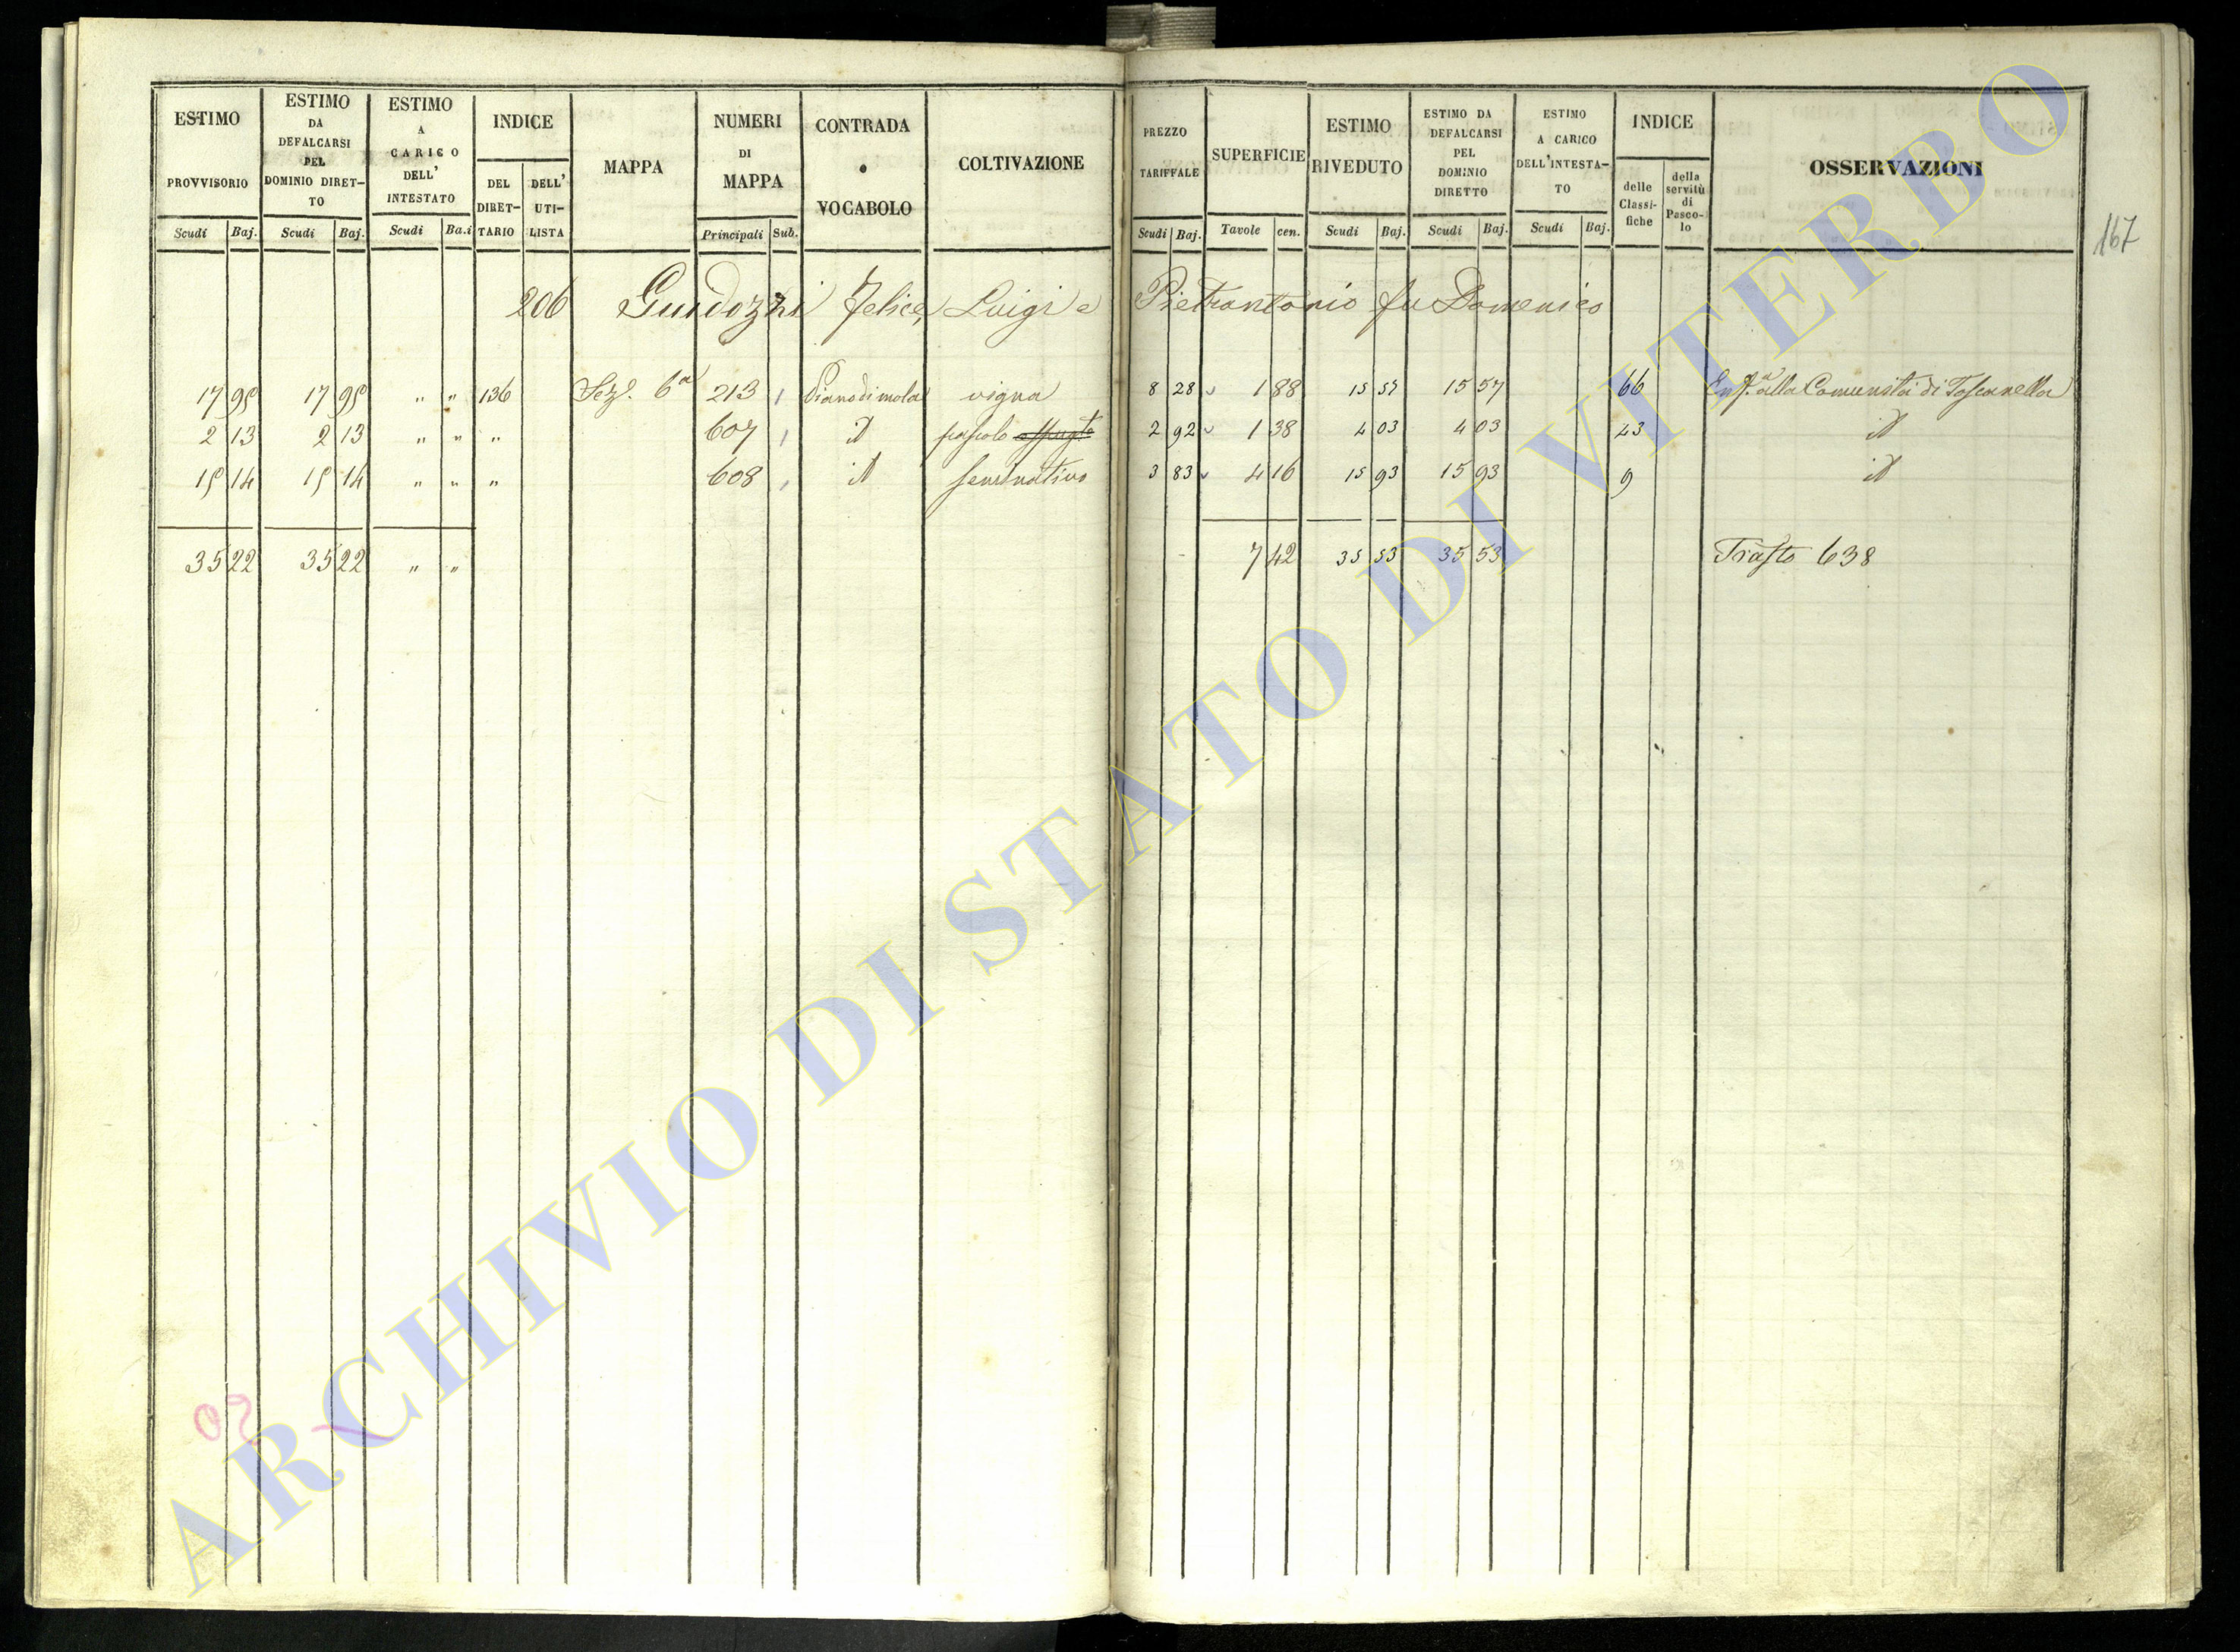 ESTIMO PROVVISORIO Scudi Baj. ESTIMO DA DEFALCARSI PEL DOMINIO DIRETTO Scudi Baj. ESTIMO A CARICO DELL' INTESTATO Scudi Ba.i INDICE DEL DIRETTARIO DELL' UTILISTA MAPPA NUMERI DI MAPPA Principali Sub. CONTRADA o VOCABOLO COLTIVAZIONE PREZZO TARIFFALE Scudi Baj. SUPERFICIE Tavole cen. ESTIMO RIVEDUTO Scudi Baj. ESTIMO DA DEFALCARSI PEL DOMINIO DIRETTO Scudi Baj. ESTIMO A CARICO DELL'INTESTATO Scudi Baj. INDICE delle Classifiche della servitù di Pascolo OSSERVAZIONI
167
206 Guidozzi Felice, Luigi e Pietrantonio fu Domenico
17 95 17 95 " " 136 Sez. 6a 213 Piano di mola vigna 8 28 1 88 15 57 15 57 66 Enf.a alla Comunità di Toscanella
2 13 2 13 " " " 607 id pascolo 2 92 1 38 4 03 4 03 43 id
15 14 15 14 " " " 608 id seminativo 3 83 4 16 15 93 15 93 9 id
35 22 35 22 " " 7 42 35 53 35 53 Trasto 638
ARCHIVIO DI STATO DI VITERBO